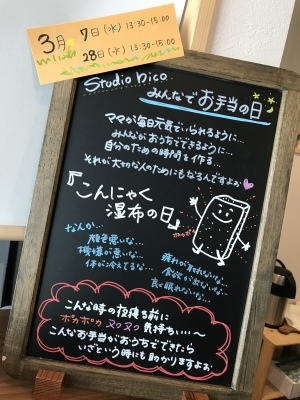 3月 7日(水) 13:30-15:00
28日(水) 13:30-15:00
Studio nico.
みんなでお手当の日
ママが毎日元気でいられるように…
みんながおうちでできるように…
自分のための時間を作る…
それが大切な人のためにもなるんですよね
『こんにゃく
湿布の日』
ポカポカ
なんか…
顔色悪いな…
機嫌が悪いな…
体が冷えてるな…
疲れが取れないな…
食欲が出ないな…
良く眠れないな…
こんな時の投薬する前に
ホカポカ ヌクヌク 気持ちい…〜
こんなお手当がおうちでできたら
いざという時にも助かりますよね